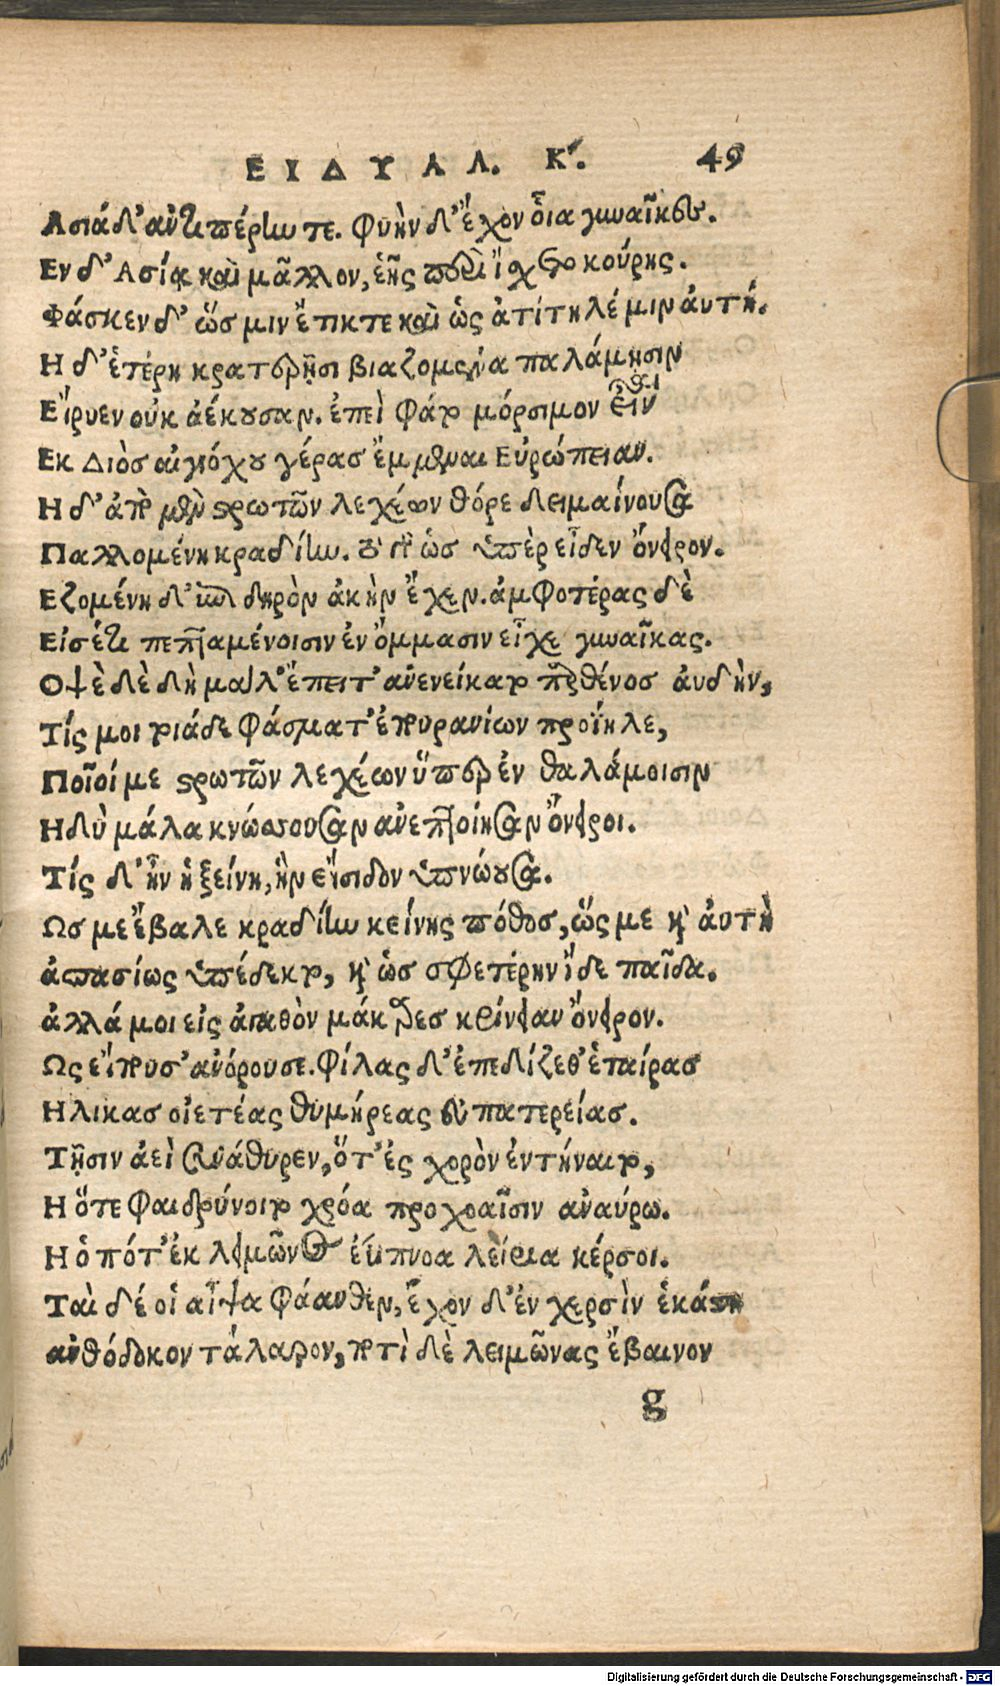 ΕΙΔΥΛΛ. Κ'. 49
Ασιάδ' αὖτι πέρην τε. φυὴν δ' ἔχον ὅια γυναῖκες.
Εν δ' Ασία καὶ μᾶλλον, ἑῆς περὶ ἴσχετο κούρης.
Φάσκεν δ' ὥσ μιν ἔτικτε καὶ ὡς ἀτίτηλέ μιν ἀυτή.
Η δ' ἑτέρη κρατερῆσι βιαζομένα παλάμησιν
Εἴρυεν οὐκ ἀέκουσαν. ἐπεὶ φάτο μόρσιμον εἶν
Εκ Διὸσ αἰγιόχου γέρασ ἔμμεναι Εὐρώπειαν.
Η δ' ἀπὸ μὲν στρωτῶν λεχέων θόρε δειμαίνουσα
Παλλομένη κραδίην. τὸ γὸ ὡσ ὑπὲρ εἶδεν ὄνειρον.
Εζομένη δ' ἐπὶ δηρὸν ἀκὴν ἔχεν. ἀμφοτέρας δὲ
Εἰσέτι πεπταμένοισιν ἐν ὄμμασιν εἶχε γυναῖκας.
Οψὲ δὲ δὴ μάλ' ἔπειτ' ἀνενείκατο παρθένοσ ἀυδὴν,
Τίς μοι τιάδε φάσματ' ἐπουρανίων προΐηλε,
Ποῖοί με στρωτῶν λεχέων ὕπερ ἐν θαλάμοισιν
Ηδὺ μάλα κνώσσουσαν ἀνεπτοίησαν ὄνειροι.
Τίς δ' ἦν ἡ ξείνη, ἣν εἴσιδον ὑπνώουσα.
Ως με ἔβαλε κραδίην κείνης πόθοσ, ὥς με καὶ ἀυτὴ
ἀσπασίως ὑπέδεκτο, καὶ ὡσ σφετέρην ἴδε παῖδα.
ἀλλά μοι εἰς ἀγαθὸν μάκαρεσ κρίνειαν ὄνειρον.
Ως εἴπουσ' ἀνόρουσε. φίλας δ' ἐπεδίζεθ' ἑταίρασ
Ηλικασ οἰετέας θυμήρεας εὐπατερείασ.
Τῆσιν ἀεὶ συνάθυρεν, ὅτ' ἐς χορὸν ἐντήναιτο,
Η ὅτε φαιδρύνοιτο χρόα προχοαῖσιν ἀναύρω.
Η ὁπότ' ἐκ λειμῶνος ἐύπνοα λείρια κέρσοι.
Ταὶ δέ οἱ αἶψα φάανθεν, ἔχον δ' ἐν χερσὶν ἑκάστη
ἀνθόδοκον τάλαρον, ποτὶ δὲ λειμῶνας ἔβαινον
g
Digitalisierung gefördert durch die Deutsche Forschungsgemeinschaft - DFG